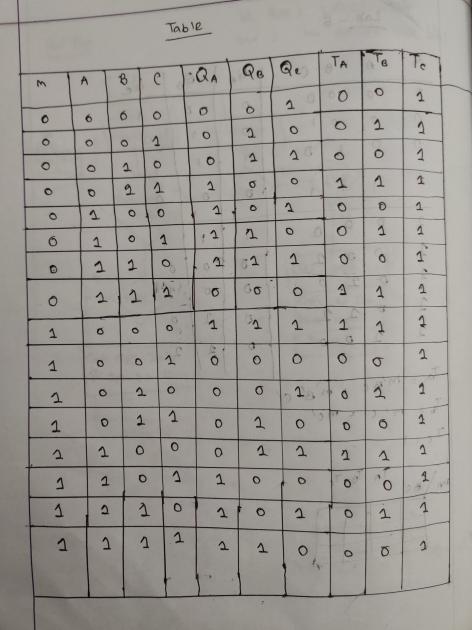 Table
M A B C QA QB QC TA TB TC
0 0 0 0 0 0 1 0 0 1
0 0 0 1 0 1 0 0 1 1
0 0 1 0 0 1 1 0 0 1
0 0 1 1 1 0 0 1 1 1
0 1 0 0 1 0 1 0 0 1
0 1 0 1 1 1 0 0 1 1
0 1 1 0 1 1 1 0 0 1
0 1 1 1 0 0 0 1 1 1
1 0 0 0 1 1 1 1 1 1
1 0 0 1 0 0 0 0 0 1
1 0 1 0 0 0 1 0 1 1
1 0 1 1 0 1 0 0 0 1
1 1 0 0 0 1 1 1 1 1
1 1 0 1 1 0 0 0 0 1
1 1 1 0 1 0 1 0 1 1
1 1 1 1 1 1 0 0 0 1